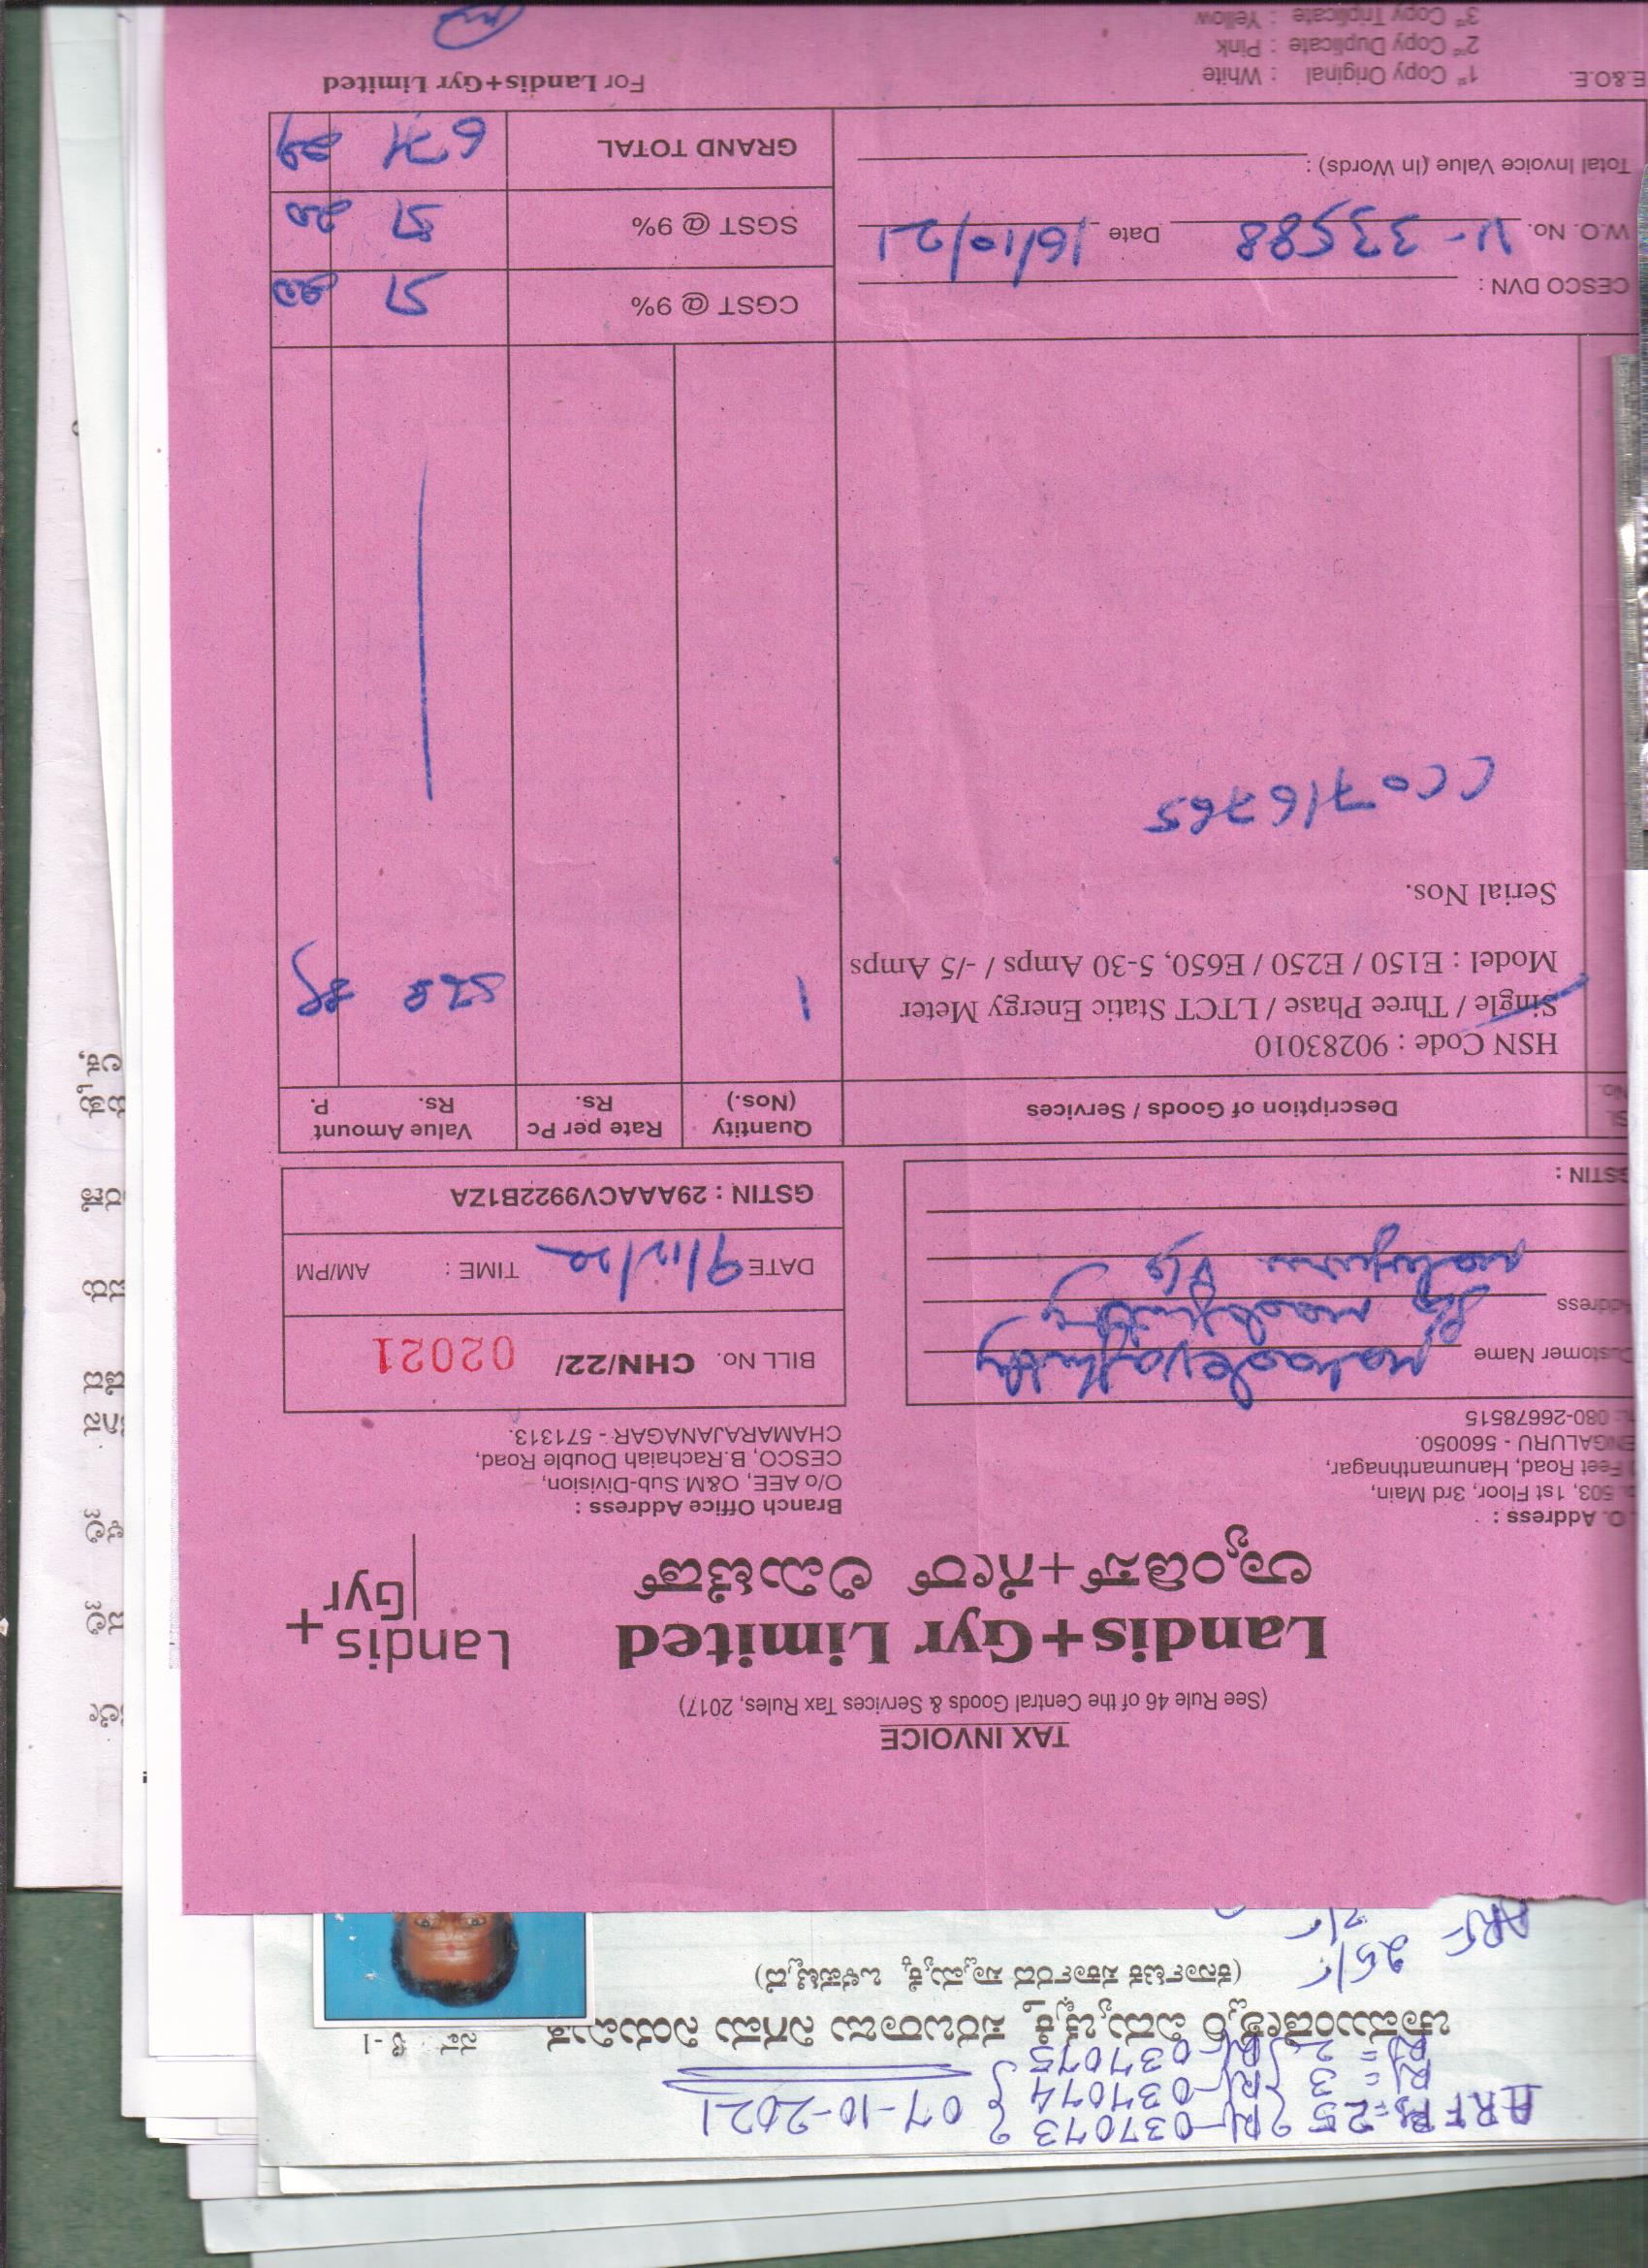 ARF Rs=25 Rl-037073
Rl= 3 Rl-037074 07-10-2021
Rl= 2 Rl-037075
ಚಾಮುಂಡೇಶ್ವರಿ ವಿದ್ಯುಚ್ಛಕ್ತಿ ಸರಬರಾಜು ನಿಗಮ ನಿಯಮಿತ
(ಕರ್ನಾಟಕ ಸರ್ಕಾರದ ಸ್ವಾಮ್ಯಕ್ಕೆ ಒಳಪಟ್ಟಿದೆ)
ARF 25/-
TAX INVOICE
(See Rule 46 of the Central Goods & Services Tax Rules, 2017)
Landis+Gyr Limited
Landis+
Gyr
ಲ್ಯಾಂಡಿಸ್+ಗೇರ್ ಲಿಮಿಟೆಡ್
O. Address :
503, 1st Floor, 3rd Main,
Feet Road, Hanumanthnagar,
ENGALURU - 560050.
: 080-26678515
Branch Office Address :
O/o AEE, O&M Sub-Division,
CESCO, B.Rachaiah Double Road,
CHAMARAJANAGAR - 571313.
ustomer Name mahadevamurthy
Address
GSTIN :
BILL No. CHN/22/ 02021
DATE 9/12/22 TIME : AM/PM
GSTIN : 29AAACV9922B1ZA
Sl. No. Description of Goods / Services Quantity (Nos.) Rate per Pc Rs. Value Amount Rs. P.
HSN Code : 90283010
Single / Three Phase / LTCT Static Energy Meter 1 528
Model : E150 / E250 / E650, 5-30 Amps / -/5 Amps
Serial Nos.
CC0716765
CESCO DVN :
CGST @ 9% 51 20
W.O. No. V-33588 Date 16/10/21
SGST @ 9% 51 20
Total Invoice Value (In Words) :
GRAND TOTAL 671
E.&O.E.
1st Copy Original : White
2nd Copy Duplicate : Pink
3rd Copy Triplicate : Yellow
For Landis+Gyr Limited